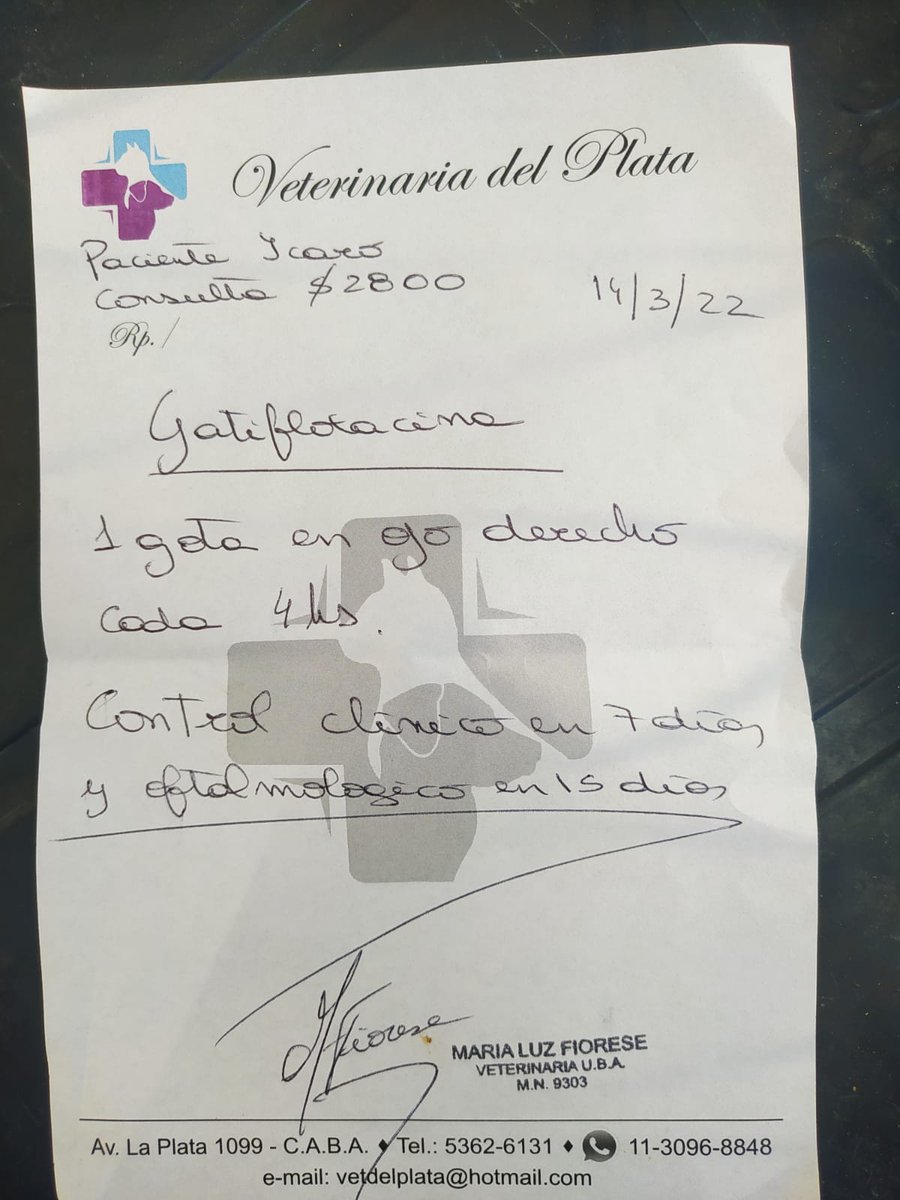 Veterinaria del Plata
Paciente Icaro
Consulta $2800
14/3/22
Rp./
Gatifloxacina
1 gota en ojo derecho
cada 4 hs.
Control clinico en 7 dias
y oftalmologico en 15 dias
MFiorese
MARIA LUZ FIORESE
VETERINARIA U.B.A.
M.N. 9303
Av. La Plata 1099 - C.A.B.A. ♦ Tel.: 5362-6131 ♦ 11-3096-8848
e-mail: vetdelplata@hotmail.com